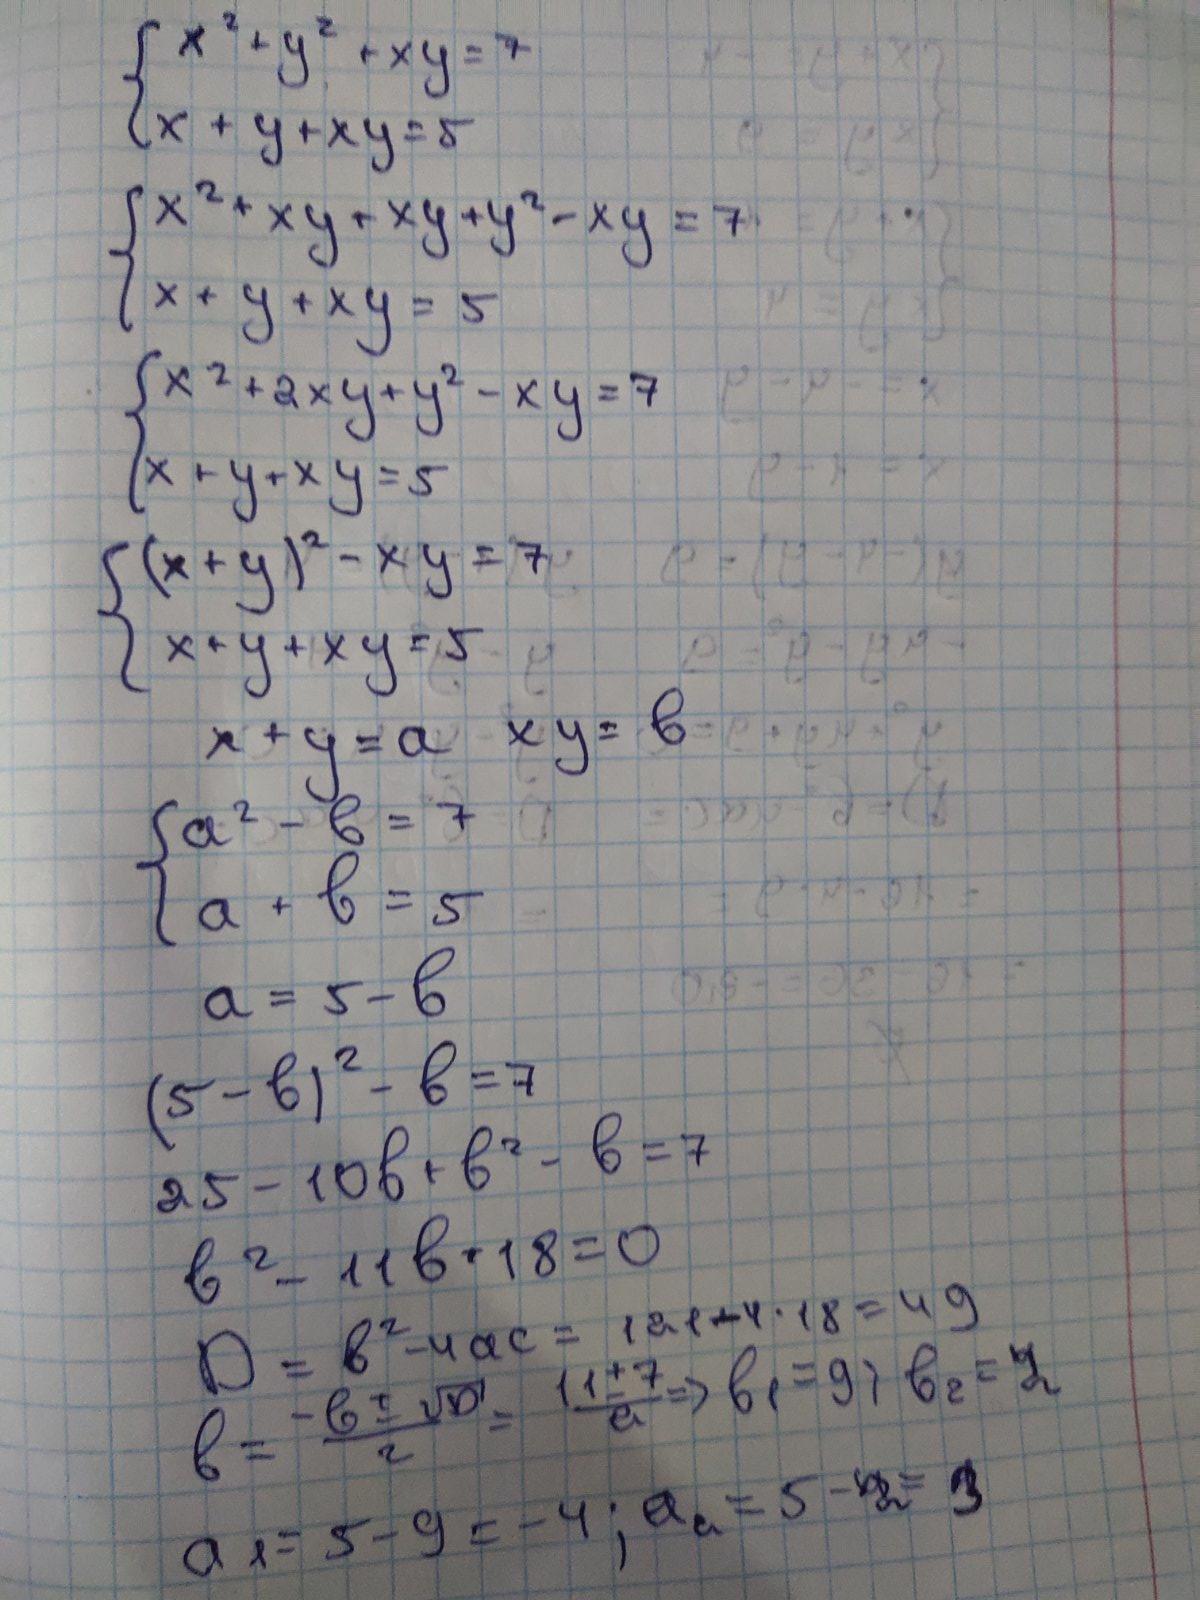 x² + y² + xy = 7
x + y + xy = 5
x² + xy + xy + y² - xy = 7
x + y + xy = 5
x² + 2xy + y² - xy = 7
x + y + xy = 5
(x + y)² - xy = 7
x + y + xy = 5
x + y = a xy = b
a² - b = 7
a + b = 5
a = 5 - b
(5 - b)² - b = 7
25 - 10b + b² - b = 7
b² - 11b + 18 = 0
D = b² - 4ac = 121 - 4·18 = 49
b = (-b ± √D)/2 = (11 ± 7)/2 => b₁ = 9; b₂ = 2
a₁ = 5 - 9 = -4; a₂ = 5 - 2 = 3